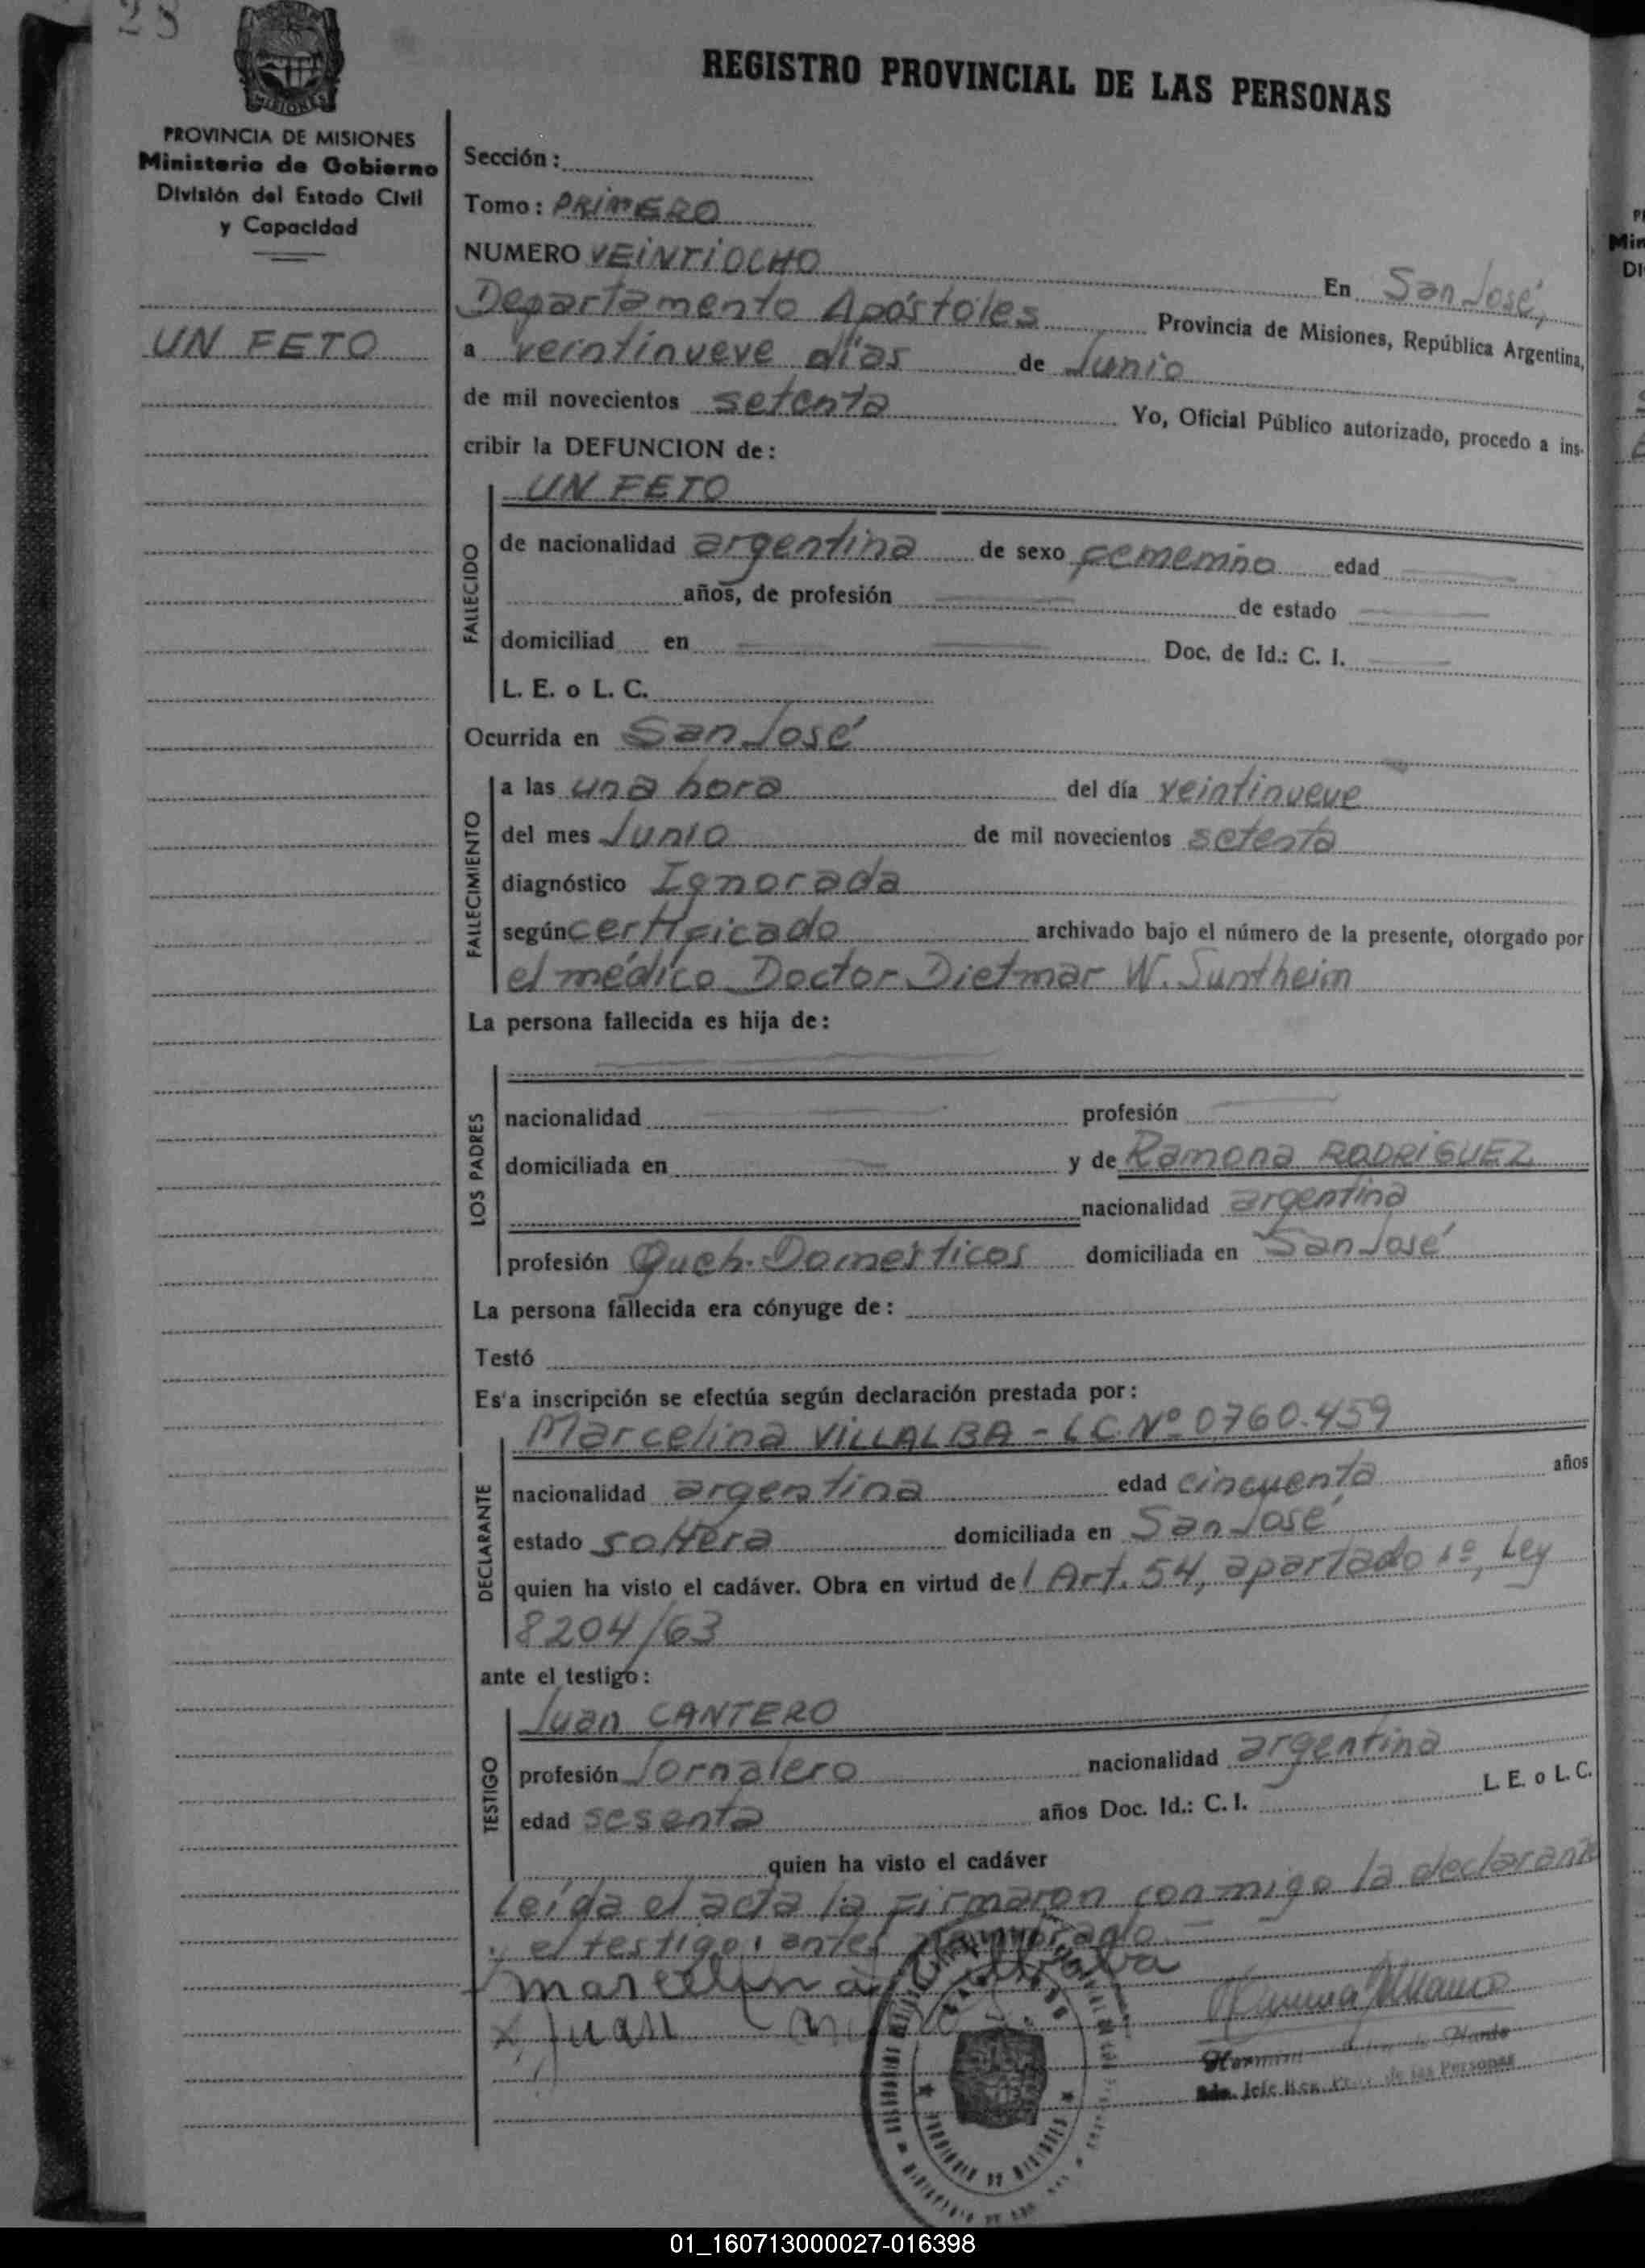 28
MISIONES
PROVINCIA DE MISIONES
Ministerio de Gobierno
División del Estado Civil
y Capacidad
UN FETO
REGISTRO PROVINCIAL DE LAS PERSONAS
Sección :
Tomo : PRIMERO
NUMERO VEINTIOCHO En San José,
Departamento Apóstoles Provincia de Misiones, República Argentina,
a veintinueve días de Junio
de mil novecientos setenta Yo, Oficial Público autorizado, procedo a ins-
cribir la DEFUNCION de :
UN FETO
FALLECIDO
de nacionalidad argentina de sexo femenino edad
años, de profesión de estado
domiciliad en Doc. de Id.: C. I.
L. E. o L. C.
Ocurrida en San José
FALLECIMIENTO
a las una hora del día veintinueve
del mes Junio de mil novecientos setenta
diagnóstico Ignorada
según certificado archivado bajo el número de la presente, otorgado por
el médico Doctor Dietmar W. Suntheim
La persona fallecida es hija de :
LOS PADRES
nacionalidad profesión
domiciliada en y de Ramona RODRIGUEZ
nacionalidad argentina
profesión Queh. Domésticos domiciliada en San José
La persona fallecida era cónyuge de :
Testó
Es'a inscripción se efectúa según declaración prestada por :
Marcelina VILLALBA - L.C. Nº 0.760.459
DECLARANTE
nacionalidad argentina edad cincuenta años
estado soltera domiciliada en San José
quien ha visto el cadáver. Obra en virtud de l Art. 54, apartado 1º, Ley
8204/63
ante el testigo :
Juan CANTERO
TESTIGO
profesión Jornalero nacionalidad argentina
edad sesenta años Doc. Id.: C. I. L. E. o L. C.
quien ha visto el cadáver
Leída el acta la firmaron conmigo la declarante
y el testigo antes nombrado.-
marcelina villalba
x Juan
Sdo. Jefe Reg. Prov. de las Personas
PROVINCIA DE MISIONES
01_160713000027-016398